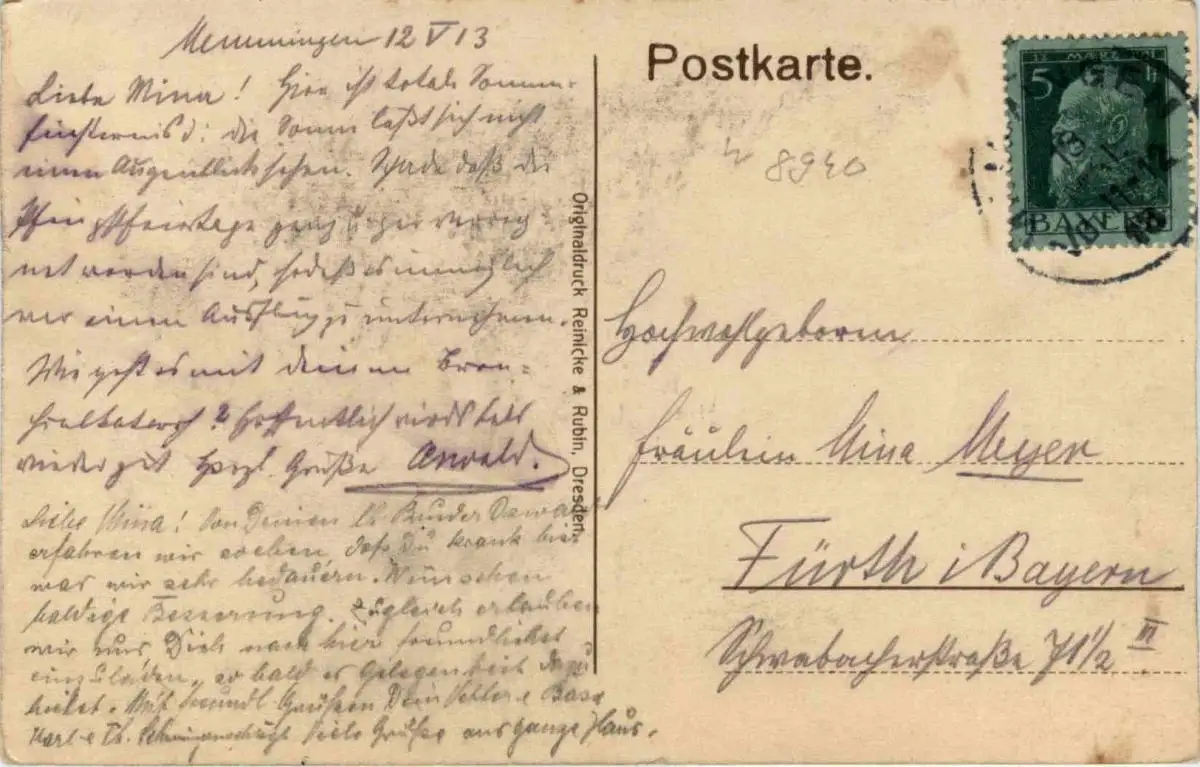 Memmingen 12 V 13
Liebe Mina! Hier ist totale Sonnen-
finsternis d: die Sonne läßt sich nicht
einen Augenblick sehen. Schade daß die
Pfingstfeiertage verreg-
net worden sind, sodaß es unmöglich
war einen Ausflug zu unternehmen.
Wie geht es mit deinem Bron-
chialkatarrh? Hoffentlich wirds bald
wieder gut Herzl. Grüße
Liebe Mina! Von Deinem lb. Bruder
erfahren wir soeben, daß Du krank bist
was wir sehr bedauern. Wünschen
baldige Besserung. Zugleich erlauben
wir uns Dich nach hier freundlichst
einzuladen, so bald es Gelegenheit dazu
bietet. Mit freundl Grüßen Dein Vetter & Base
Karl & Viele Grüße ans ganze Haus.
Originaldruck Reinicke & Rubin, Dresden.
Postkarte.
5
BAYERN
11-12
8940
Hochwohlgeboren
Fräulein Mina Meyer
Fürth i Bayern
Schwabacherstraße 71 1/2 III